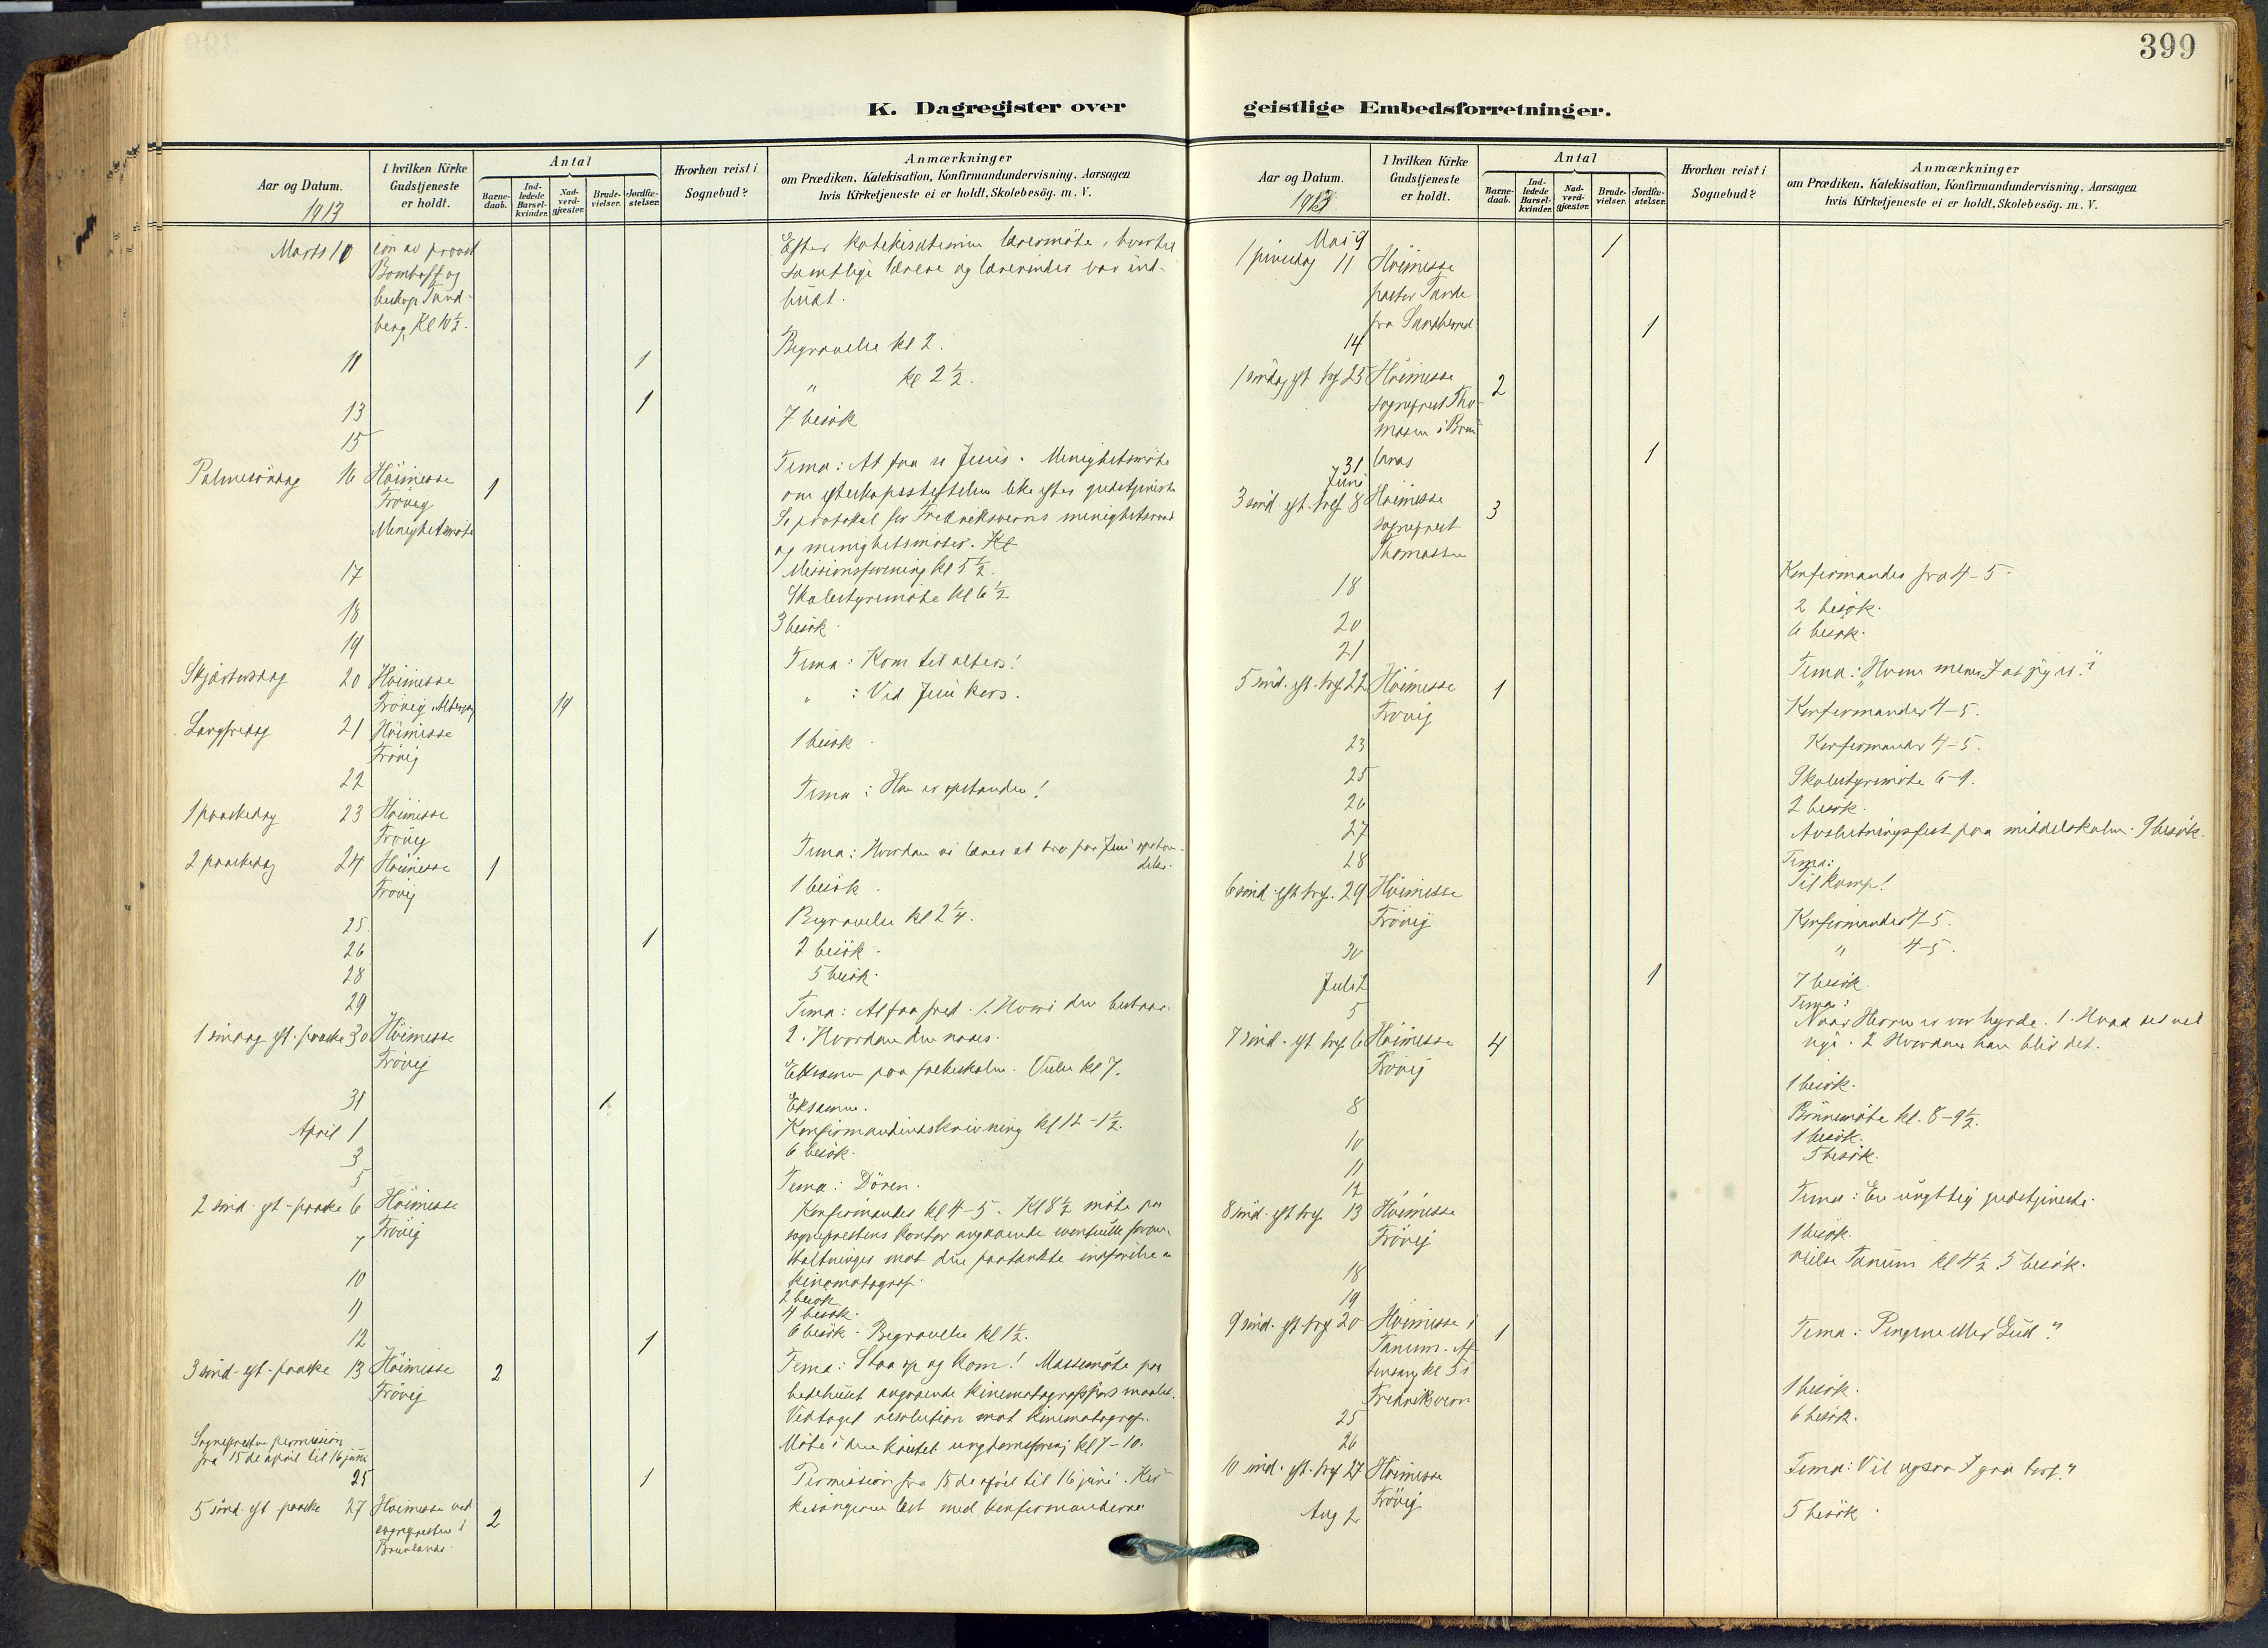 399
K. Dagregister over
geistlige Embedsforretninger.
Aar og Datum.
1913
I hvilken Kirke Gudstjeneste er holdt.
Antal
Barne-daab.
Ind-ledede Barsel-kvinder.
Nad-verd-gjæster.
Brude-vielser.
Jordfæ-stelser.
Hvorhen reist i Sognebud?
Anmærkninger
om Prædiken, Katekisation, Konfirmandundervisning, Aarsagen
hvis Kirketjeneste ei er holdt, Skolebesøg. m. V.
Marts 10
av provst
Bomhoff og
biskop Tand-
berg, Kl 10½.
Efter katekisationen lærermöte, hvortil
samtlige lærere og lærerinder var ind-
budt.
11 1 Begravelse kl 2.
13 1 " kl 2½.
15 7 besök
Palmesöndag 16 Höimesse 1 Tema: At faa se Jesus. Menighetsmöte
Frövig
Menighetsmöte
like efter gudstjeneste
Se protokol for Fredriksverns menighetsraad
og menighetsmöter. Kl
17 Missionsforening kl 5½.
18 Skolestyremöte kl 6½
19 3 besök.
Skjærtorsdag 20 Höimesse Tema: Kom til alters!
Frövig, Altergang 14
Langfredag 21 Höimesse " : Ved Jesu kors.
Frövig
22 1 besök.
1 paaskedag 23 Höimesse Tema: Han er opstanden!
Frövig
2 paaskedag 24 Höimesse 1 Tema: Hvordan vi lærer at tro paa Jesu opstan-
delse.
Frövig
25 1 besök.
26 1 Begravelse kl 2¼.
28 2 besök.
29 5 besök.
1 söndag eft. paaske 30 Höimesse Tema: At faa fred. 1. Hvori den bestaar.
Frövig 2. Hvordan den naaes.
31 1 Eksamen paa folkeskolen. Vielse kl 7.
April 1 Eksamen.
3 Konfirmandindskrivning kl 12-1½.
5 6 besök.
2 sönd. eft. paaske 6 Höimesse Tema: Dören.
Frövig
7 Konfirmander kl 4-5. Kl 8½ möte paa
sogneprestens kontor angaaende eventuelle foran-
staltninger mot den paatænkte indförelse a
kinomatograf.
10 2 besök
11 4 besök.
12 1 6 besök. Begravelse kl 1½.
3 sönd. eft. paaske 13 Höimesse 2 Tema: Staa op og kom! Massemöte paa
Frövig bedehuset angaaende kinematografspörsmaalet.
Vedtaget resolution mot kinematograf.
Möte i den kristel. ungdomsforenj kl 7-10.
Sognepresten permission
fra 15de april til 16 juni
25 1 Permission fra 15de april til 16 juni. Kir-
kesangeren læst med konfirmanderne
5 sönd eft. paaske 27 Höimesse ved 2
sognepresten i
Brunlanes.
Aar og Datum.
1913
I hvilken Kirke Gudstjeneste er holdt.
Antal
Barne-daab.
Ind-ledede Barsel-kvinder.
Nad-verd-gjæster.
Brude-vielser.
Jordfæ-stelser.
Hvorhen reist i Sognebud?
Anmærkninger
om Prædiken, Katekisation, Konfirmandundervisning, Aarsagen
hvis Kirketjeneste ei er holdt, Skolebesøg. m. V.
Mai 9 1
1 pinsedag 11 Höimesse
pastor Tande
fra Sandherred
14 1
1 söndag eft tref. 25 Höimesse 2
sogneprest Tho-
masen i Brun
lanes
31 1
Juni
3 sönd. eft. tref. 8 Höimesse 3
sogneprest
Thomassen
18 Konfirmander fra 4-5.
20 2 besök.
21 6 besök.
5 sönd. eft. tref. 22 Höimesse 1 Tema: "Hvem mener I at jeg er?"
Frövig
23 Konfirmander 4-5.
25 Konfirmander 4-5.
26 Skolestyremöte 6-9.
27 2 besök.
28 Avslutningsfest paa middelskolen. 9 besök.
6 sönd. eft tref. 29 Höimesse Tema:
Til kamp!
Frövig
30 Konfirmander 4-5.
Juli 2 1 " 4-5.
5 7 besök.
7 sönd. eft tref 6 Höimesse 4 Tema:
Frövig Naar Herren er vor hyrde. 1. Hvad det vel
2 Hvordan han blir det.
8 1 besök.
10 Bönnemöte kl. 8-9½.
11 1 besök.
12 5 besök.
8 sönd. eft tref. 13 Höimesse Tema: En unyttig gudstjeneste.
Frövig
18 1 besök.
19 vielse Tanum kl 4½ 5 besök.
9 sönd. eft tref 20 Höimesse i 1 Tema: Pengene eller Gud?"
Tanum. Af-
tensang kl 5 i
Fredriksvern
25 1 besök.
26 6 besök.
10 sönd. eft. tref 27 Höimesse Tema: Vil ogsaa I gaa bort?"
Frövig
Aug 2 5 besök.